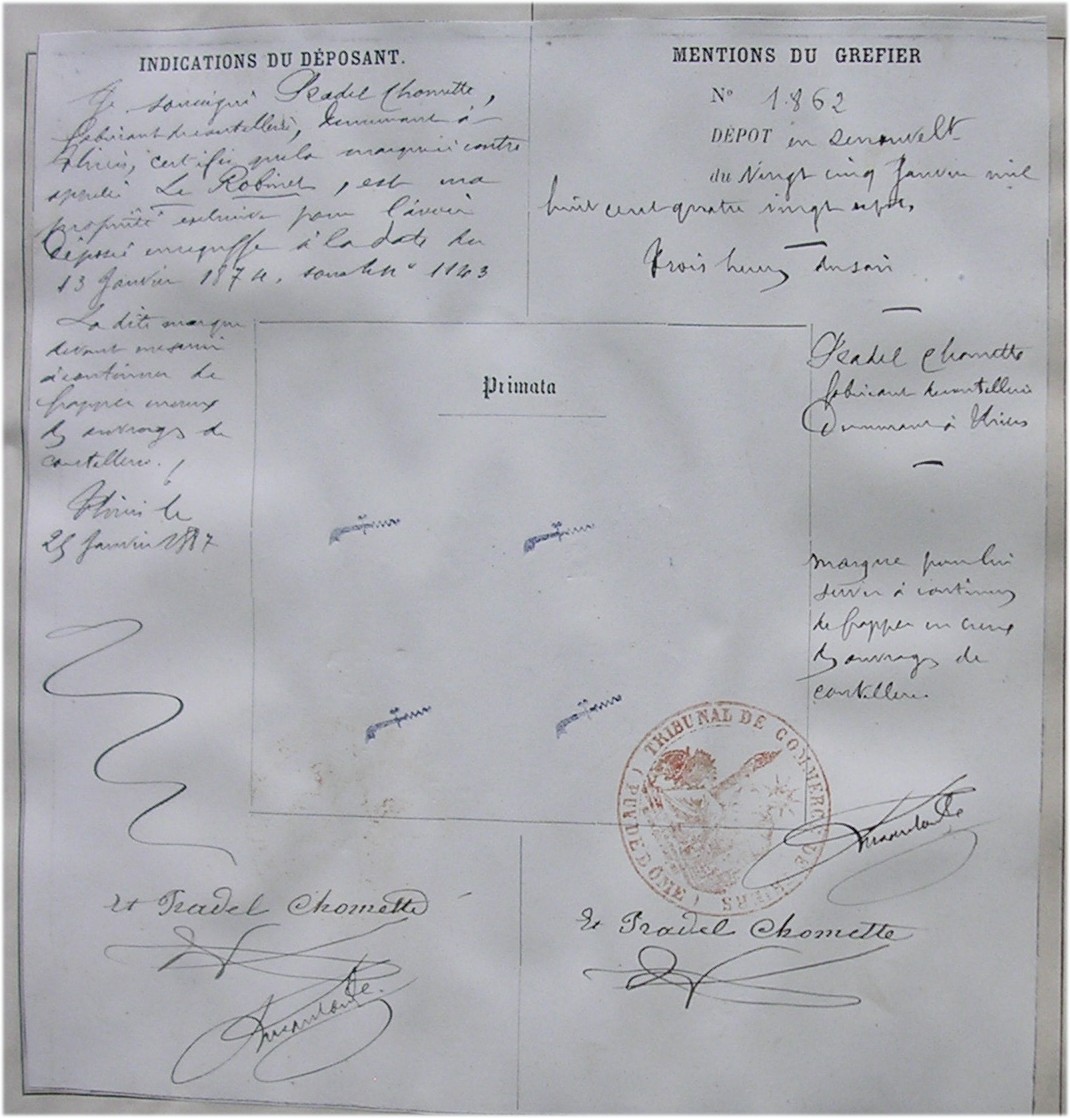 INDICATIONS DU DÉPOSANT.
Je soussigné Pradel Chomette,
fabricant de coutellerie, demeurant à
Thiers, certifie que la marque ci contre
appelée Le Robinet, est ma
propriété exclusive pour l'avoir
déposée au greffe à la date du
13 Janvier 1874, sous le N° 1143
La dite marque
devant me servir
à continuer de
frapper en creux
des ouvrages de
coutellerie.
Thiers le
25 Janvier 1887
Et Pradel Chomette
MENTIONS DU GREFIER
N° 1.862
DÉPOT en renouvelt
du Vingt cinq Janvier mil
huit cent quatre vingt sept,
Trois heures du soir
Pradel Chomette
fabricant de coutellerie
Demeurant à Thiers
marque pour lui
servir à continuer
de frapper en creux
des ouvrages de
coutellerie.
Primata
TRIBUNAL DE COMMERCE DE THIERS
(PUY DE DÔME)
Et Pradel Chomette